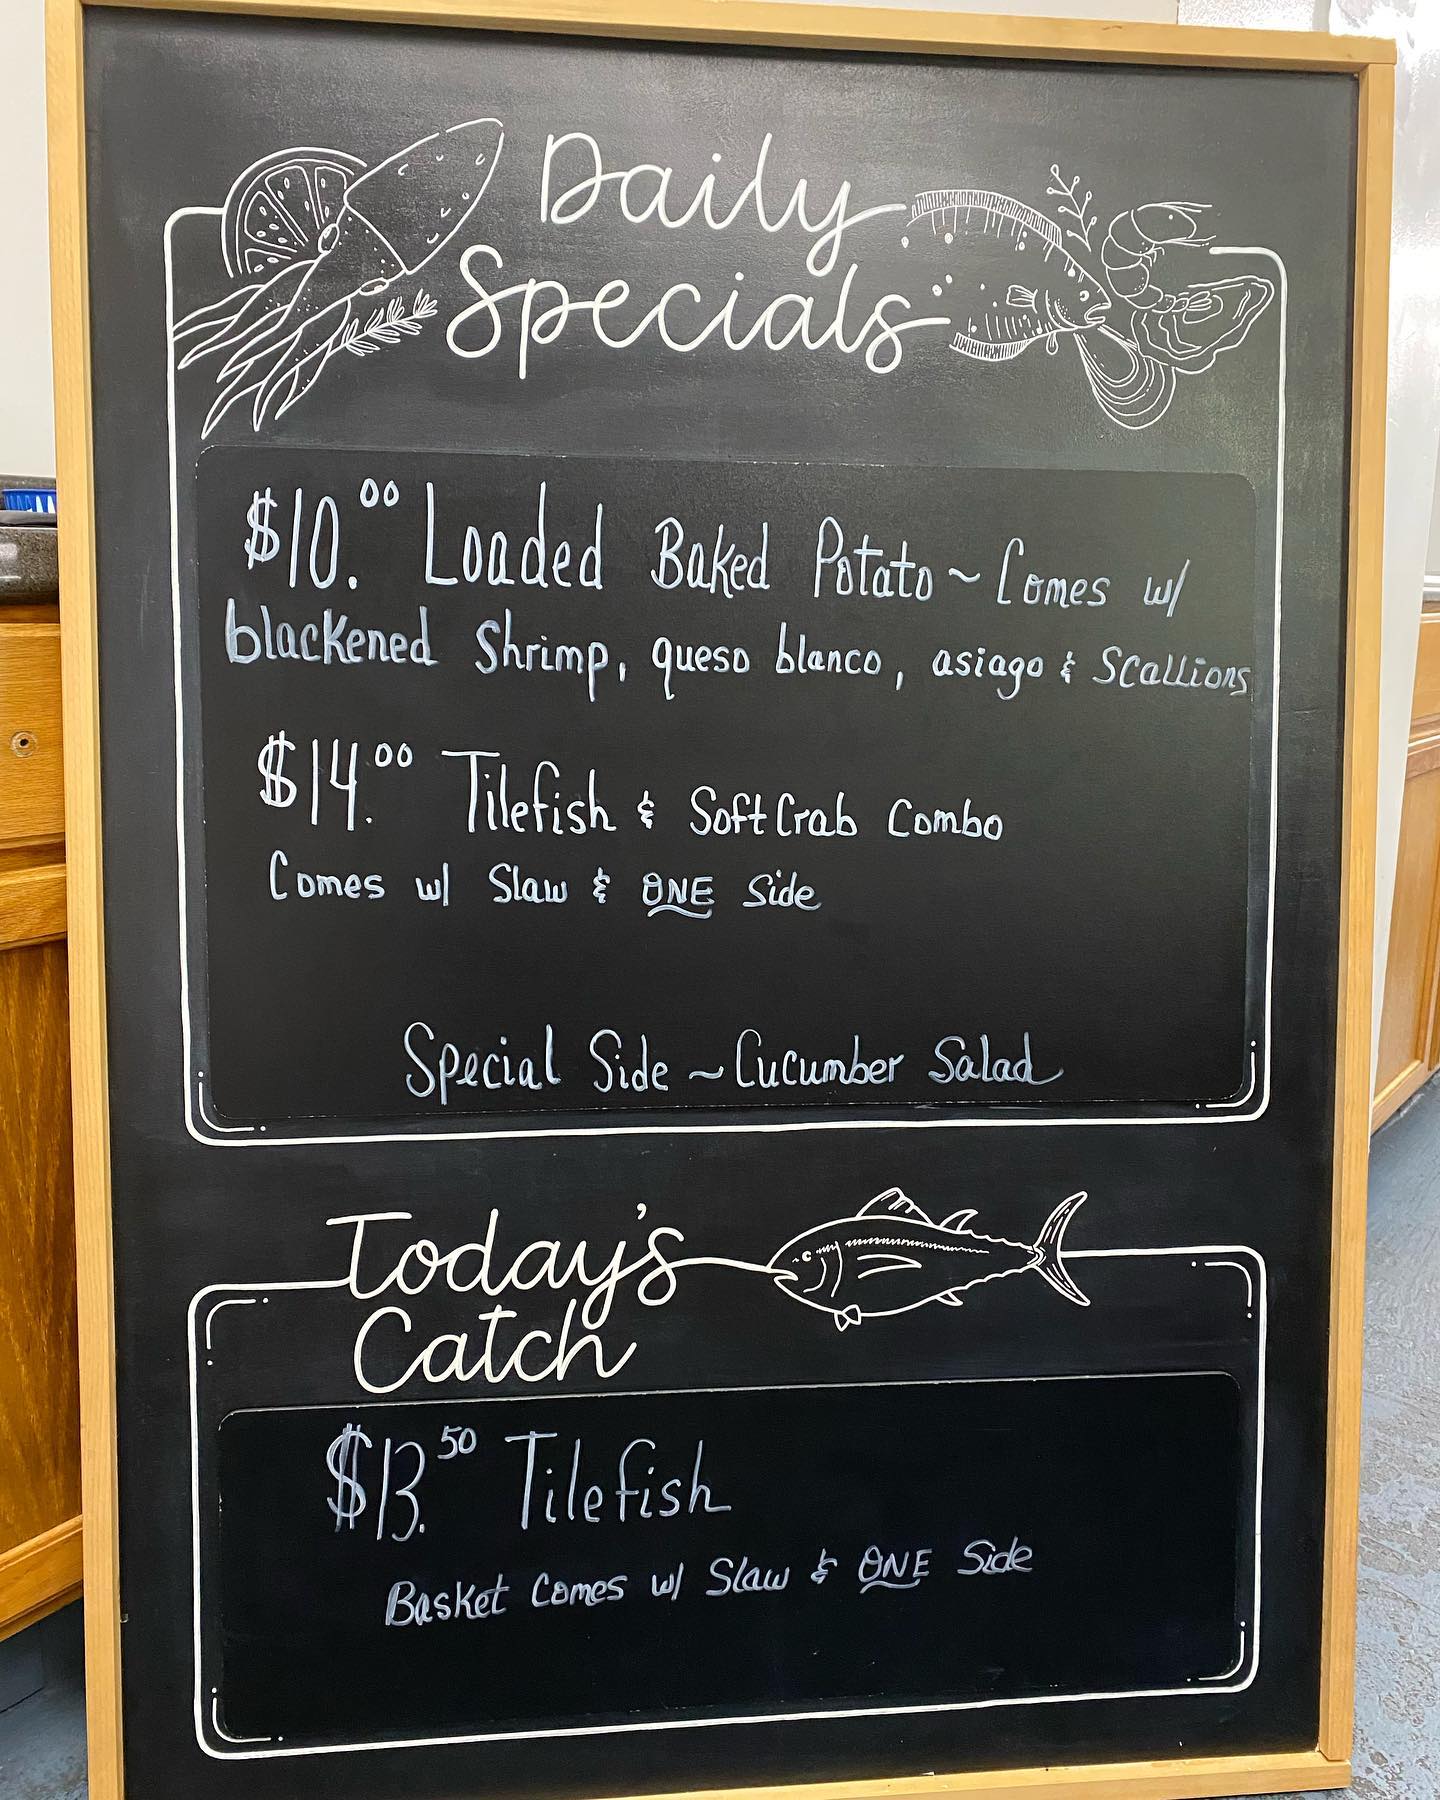 Daily
Specials
$10.00 Loaded Baked Potato ~ Comes w/
blackened Shrimp, queso blanco, asiago & Scallions
$14.00 Tilefish & Soft Crab Combo
Comes w/ Slaw & ONE Side
Special Side ~ Cucumber Salad
Today's
Catch
$13.50 Tilefish
Basket Comes w/ Slaw & ONE Side